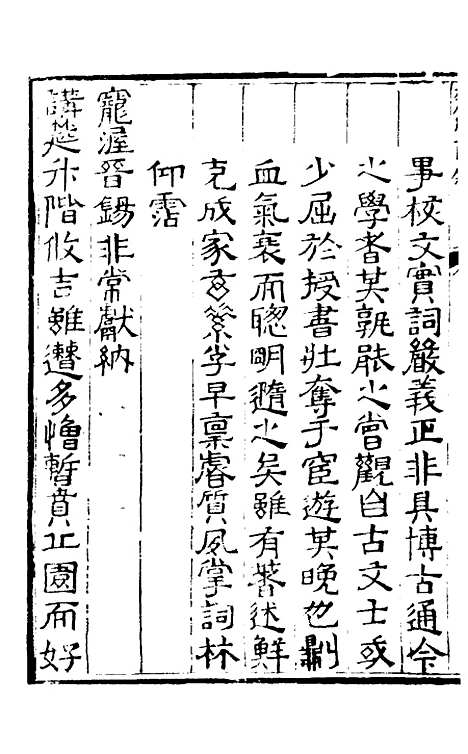 事核文實詞嚴義正非具博古通今
之學者其孰䏻之嘗觀自古文士或
少屈於授書壯奪于宦遊其晚也
血氣衰而聰明隨之矣雖有著述鮮
克成家
字早稟睿質夙掌詞林
仰霑
寵渥晉錫非常獻納
講筵升階攸吉雖
多
暫賁丘園而好